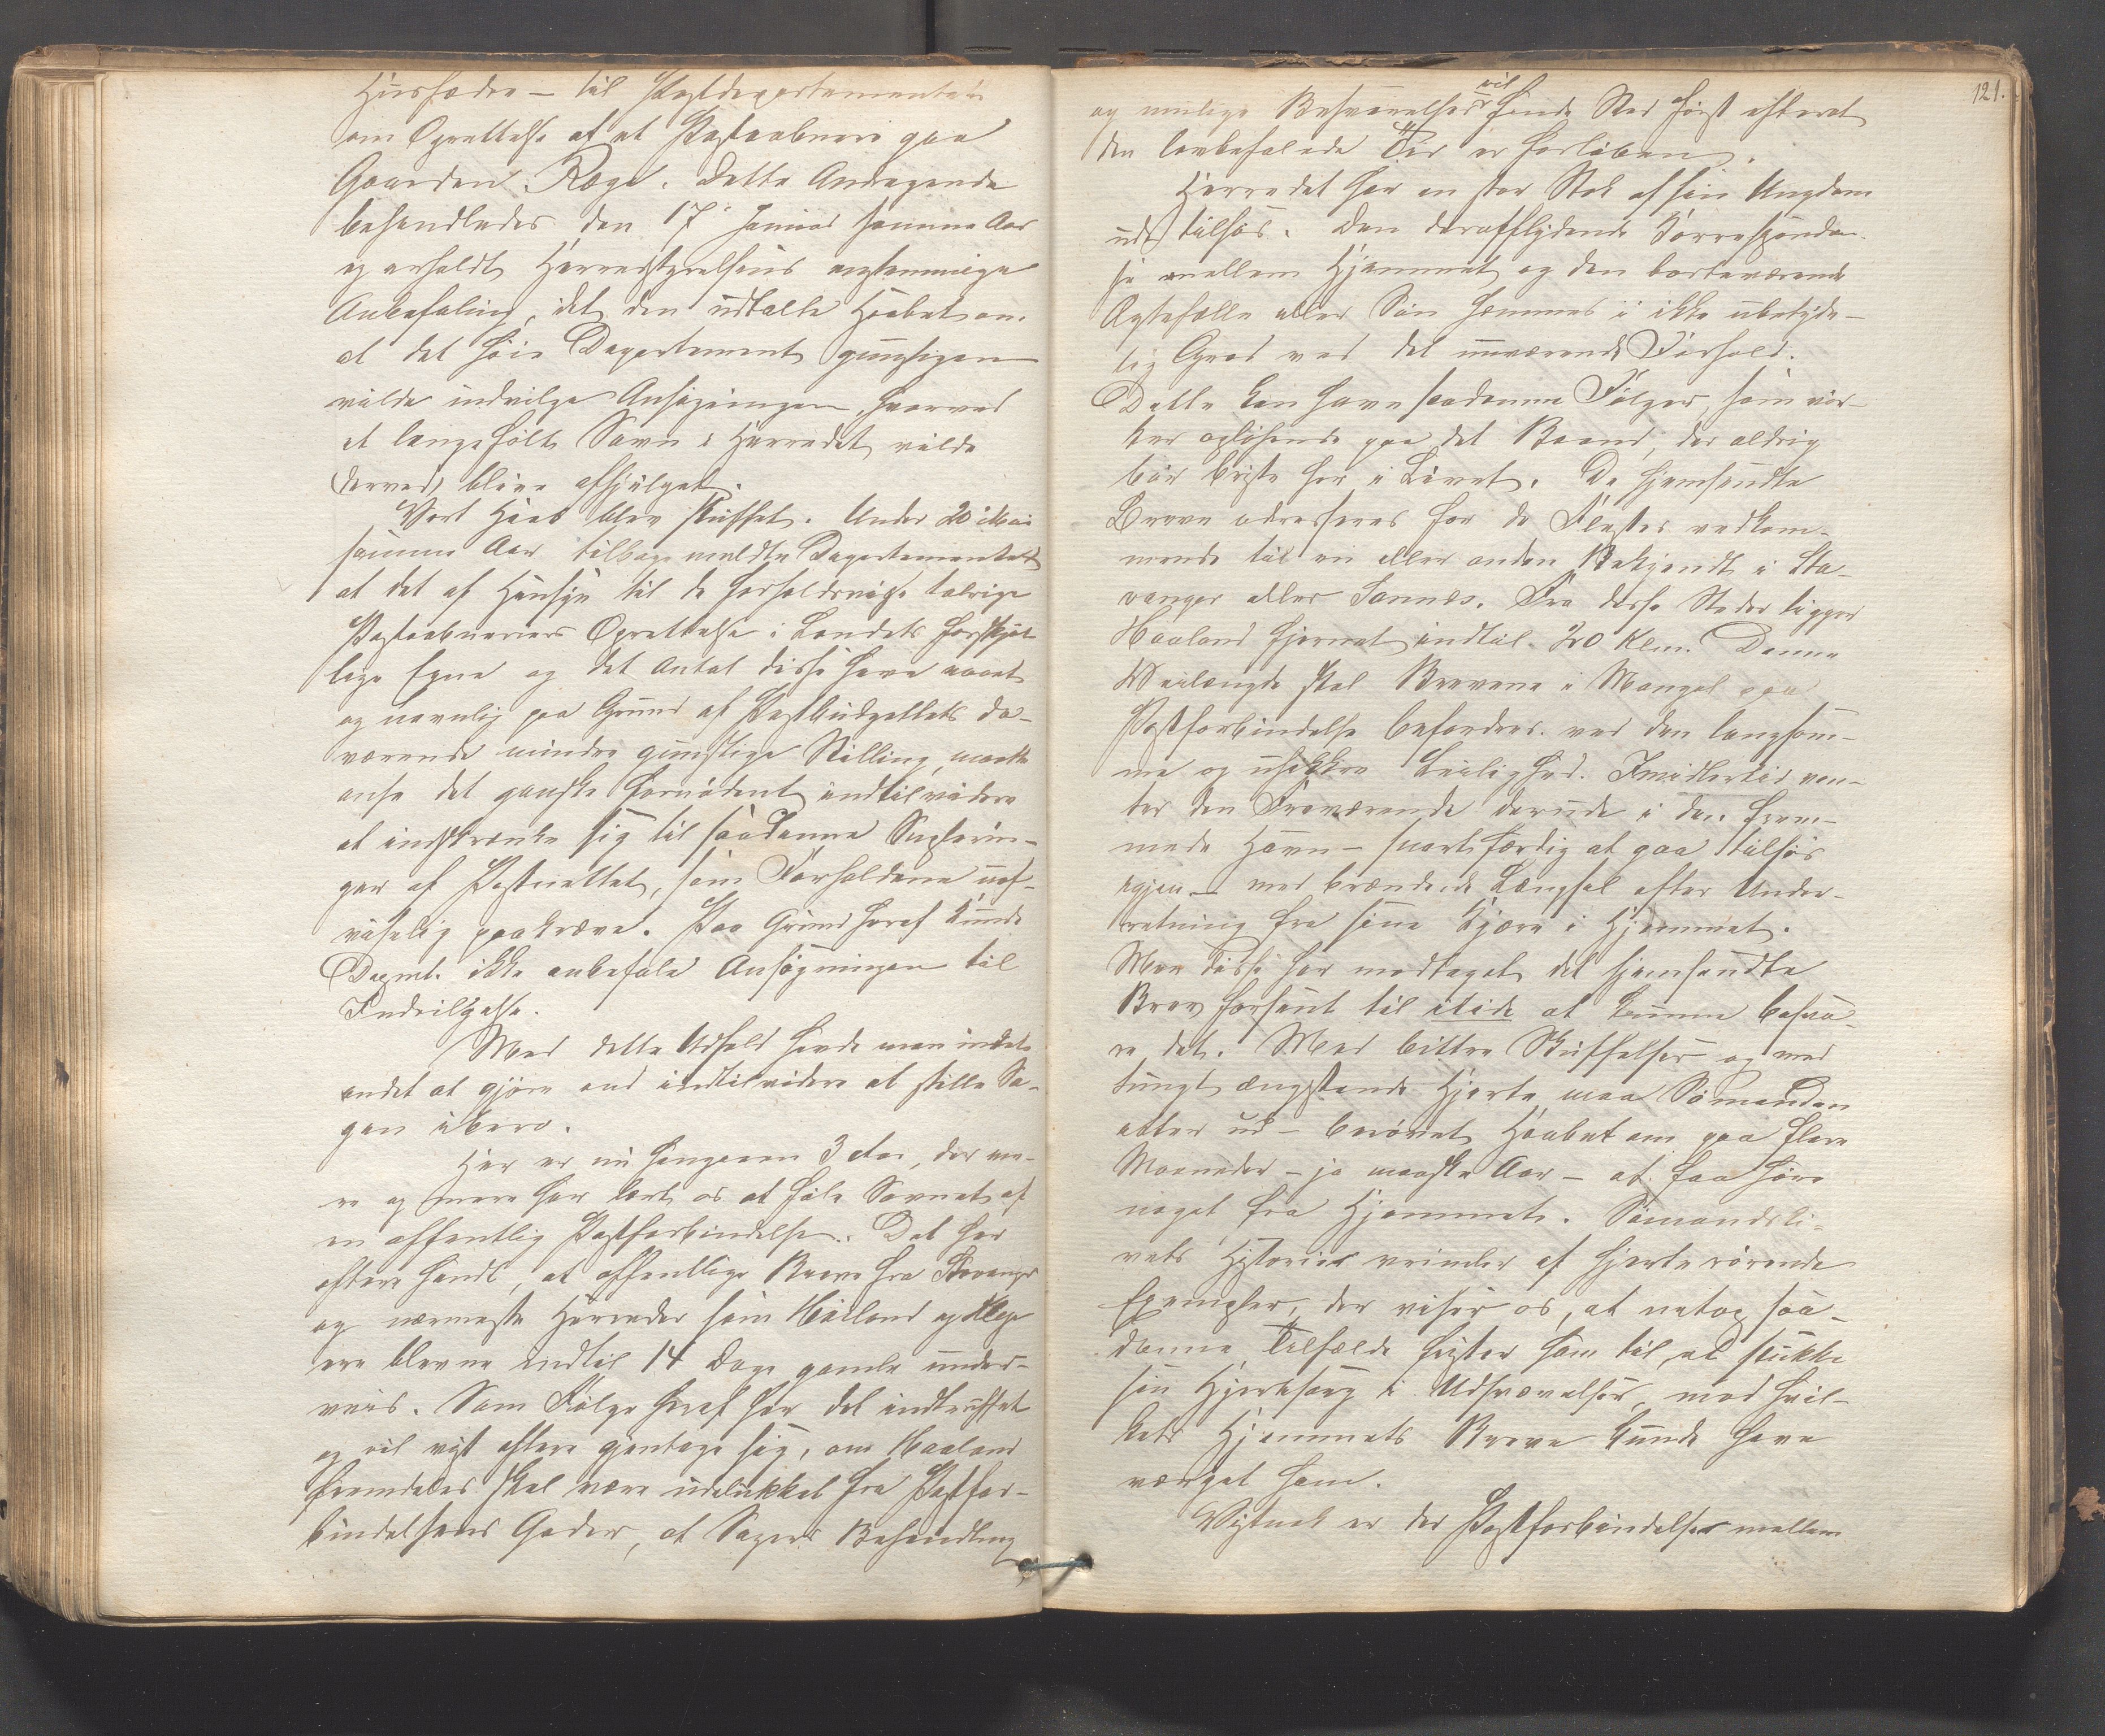 Husfædre – til Postdepartementet
om Oprettelse af et Postaabneri paa
Gaarden Ræge. Dette Andragende
behandledes den 17 Januar samme Aar
og erholdt Herredstyrelsens enstemmige
Anbefaling, idet den udtalte Haabet om
at det høie Departement gunstigen
vilde indvilge Ansøgningen, hvorved
et længe følt Savn i Herredet vilde
derved blive afhjulpet.
Vort Haab blev skuffet. Under 20 Mai
samme Aar tilbagemeldte Departementet
at det af Hensyn til de forholdsvise talrige
Postaabneriers Oprettelse i Landets forskjel-
lige Egne og det Antal disse have naaet
og navnlig paa Grund af Postbudgettets da-
værende mindre gunstige Stilling, maatte
anse det ganske fornødent indtil videre
at indskrænke sig til saadanne Supplerin-
ger af Postnettet, som Forholdene uaf-
viselig paakræve. Paa Grund heraf kunde
Depmt. ikke anbefale Ansøgningen til
Indvilgelse.
Med dette Udfald havde man intet
andet at gjøre end indtilvidere at stille Sa-
gen ibero.
Her er nu hengaaen 3 Aar, der me-
re og mere har lært os at føle Savnet af
en offentlig Postforbindelse. Det har
oftere hændt, at offentlige Breve fra Stavanger
og nærmeste Herreder som Høiland og Klepp
ere blevne indtil 14 Dage gamle under-
veis. Som Følge heraf har det indtruffet
og vil vist oftere gjentage sig, om Haaland
fremdeles skal være udelukket fra Postfor-
bindelsens Goder, at Sagers Behandling
121.
vil
og mulige Besvarelser finde Sted først efterat
den lovbefalede Tid er forløben.
Herredet har en stor Stok af sin Ungdom
ude tilsøs. Den deraf flydende Korrespondan-
se mellem Hjemmet og den bortværende
Ægtefælle eller Søn hemmes i ikke ubetyde-
lig Grad ved det nuværende Forhold.
Dette kan have saadanne Følger, som vir-
ker opløsende paa det Baand, der aldrig
bør briste her i Livet. De hjemsendte
Breve adresseres for de Flestes vedkom-
mende til en eller anden Bekjendt i Sta-
vanger eller Sannes. Fra disse Steder ligger
Haaland fjernet indtil 20 Klm. Denne
Veilængde skal Brevene i Mangel paa
Postforbindelse befordres ved den langsom-
me og usikkre Leilighed. Imidlertid ven-
ter den Fraværende derude i den frem-
mede Havn – snart færdig at gaa tilsøs
igjen – med brændende Længsel efter Under-
retning fra sine Kjære i Hjemmet.
Men disse har modtaget det hjemsendte
Brev forsent til itide at kunne besva-
re det. Med bittre Skuffelser og med
tungt ængstende Hjerte maa Sømanden
atter ud – berøvet Haabet om paa flere
Maaneder – ja maaske Aar – at faa høre
noget fra Hjemmet. Sømandsli-
vets Historier vrimler af hjerterørende
Exempler, der viser os, at netop saa-
danne Tilfælde frister ham til at slukke
sin Hjertesorg i Udsvævelser, mod hvil-
ket Hjemmets Breve kunde have
værget ham.
Vistnok er der Postforbindelser mellem